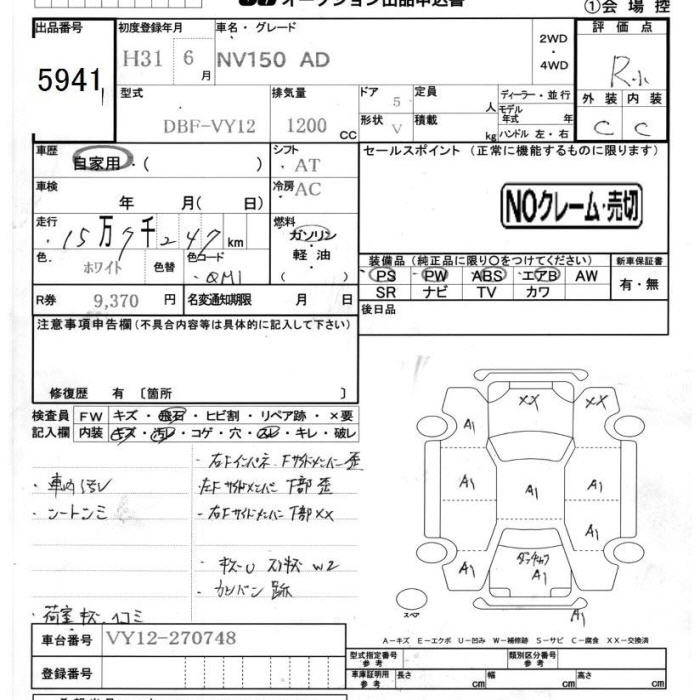 オークション出品申込書
①会場控
出品番号
5941
初度登録年月
H31 6月
車名・グレード
NV150 AD
2WD
・
4WD
評価点
R小
型式
DBF-VY12
排気量
1200 cc
ドア
5
形状
V
定員
人
積載
kg
ディーラー・並行
モデル年式 年
ハンドル 左・右
外装 内装
C C
車歴
自家用・( )
シフト
AT
セールスポイント (正常に機能するものに限ります)
車検
年 月( 日)
冷房
AC
NOクレーム・売切
走行
15万7千247km
燃料
ガソリン
・
軽油
( )
色
ホワイト
色替
色コード
QM1
装備品 (純正品に限り○をつけてください)
新車保証書
PS PW ABS エアB AW
SR ナビ TV カワ
有・無
R券 9,370 円
名変通知期限 月 日
後日品
注意事項申告欄 (不具合内容等は具体的に記入して下さい)
修復歴 有 〔箇所 〕
検査員
記入欄
FW キズ・飛石・ヒビ割・リペア跡・×要
内装 キズ・汚レ・コゲ・穴・スレ・キレ・破レ
・右Fインパネ Fサイドメンバー 歪
・車内汚レ
・左Fサイドメンバー 下部 歪
・右Fサイドメンバー 下部 XX
・キズU スリキズ W2
・カンバン 跡
・荷室 キズ ヘコミ
XX
XX
A1
A1
A1
A1
A1
A1
A1
A1
A1
スペア
A-キズ E-エクボ U-凹み W-補修跡 S-サビ C-腐食 XX-交換済
車台番号 VY12-270748
登録番号
型式指定番号
参考
類別区分番号
参考
車庫証明用
参考
長さ cm 幅 cm 高さ cm